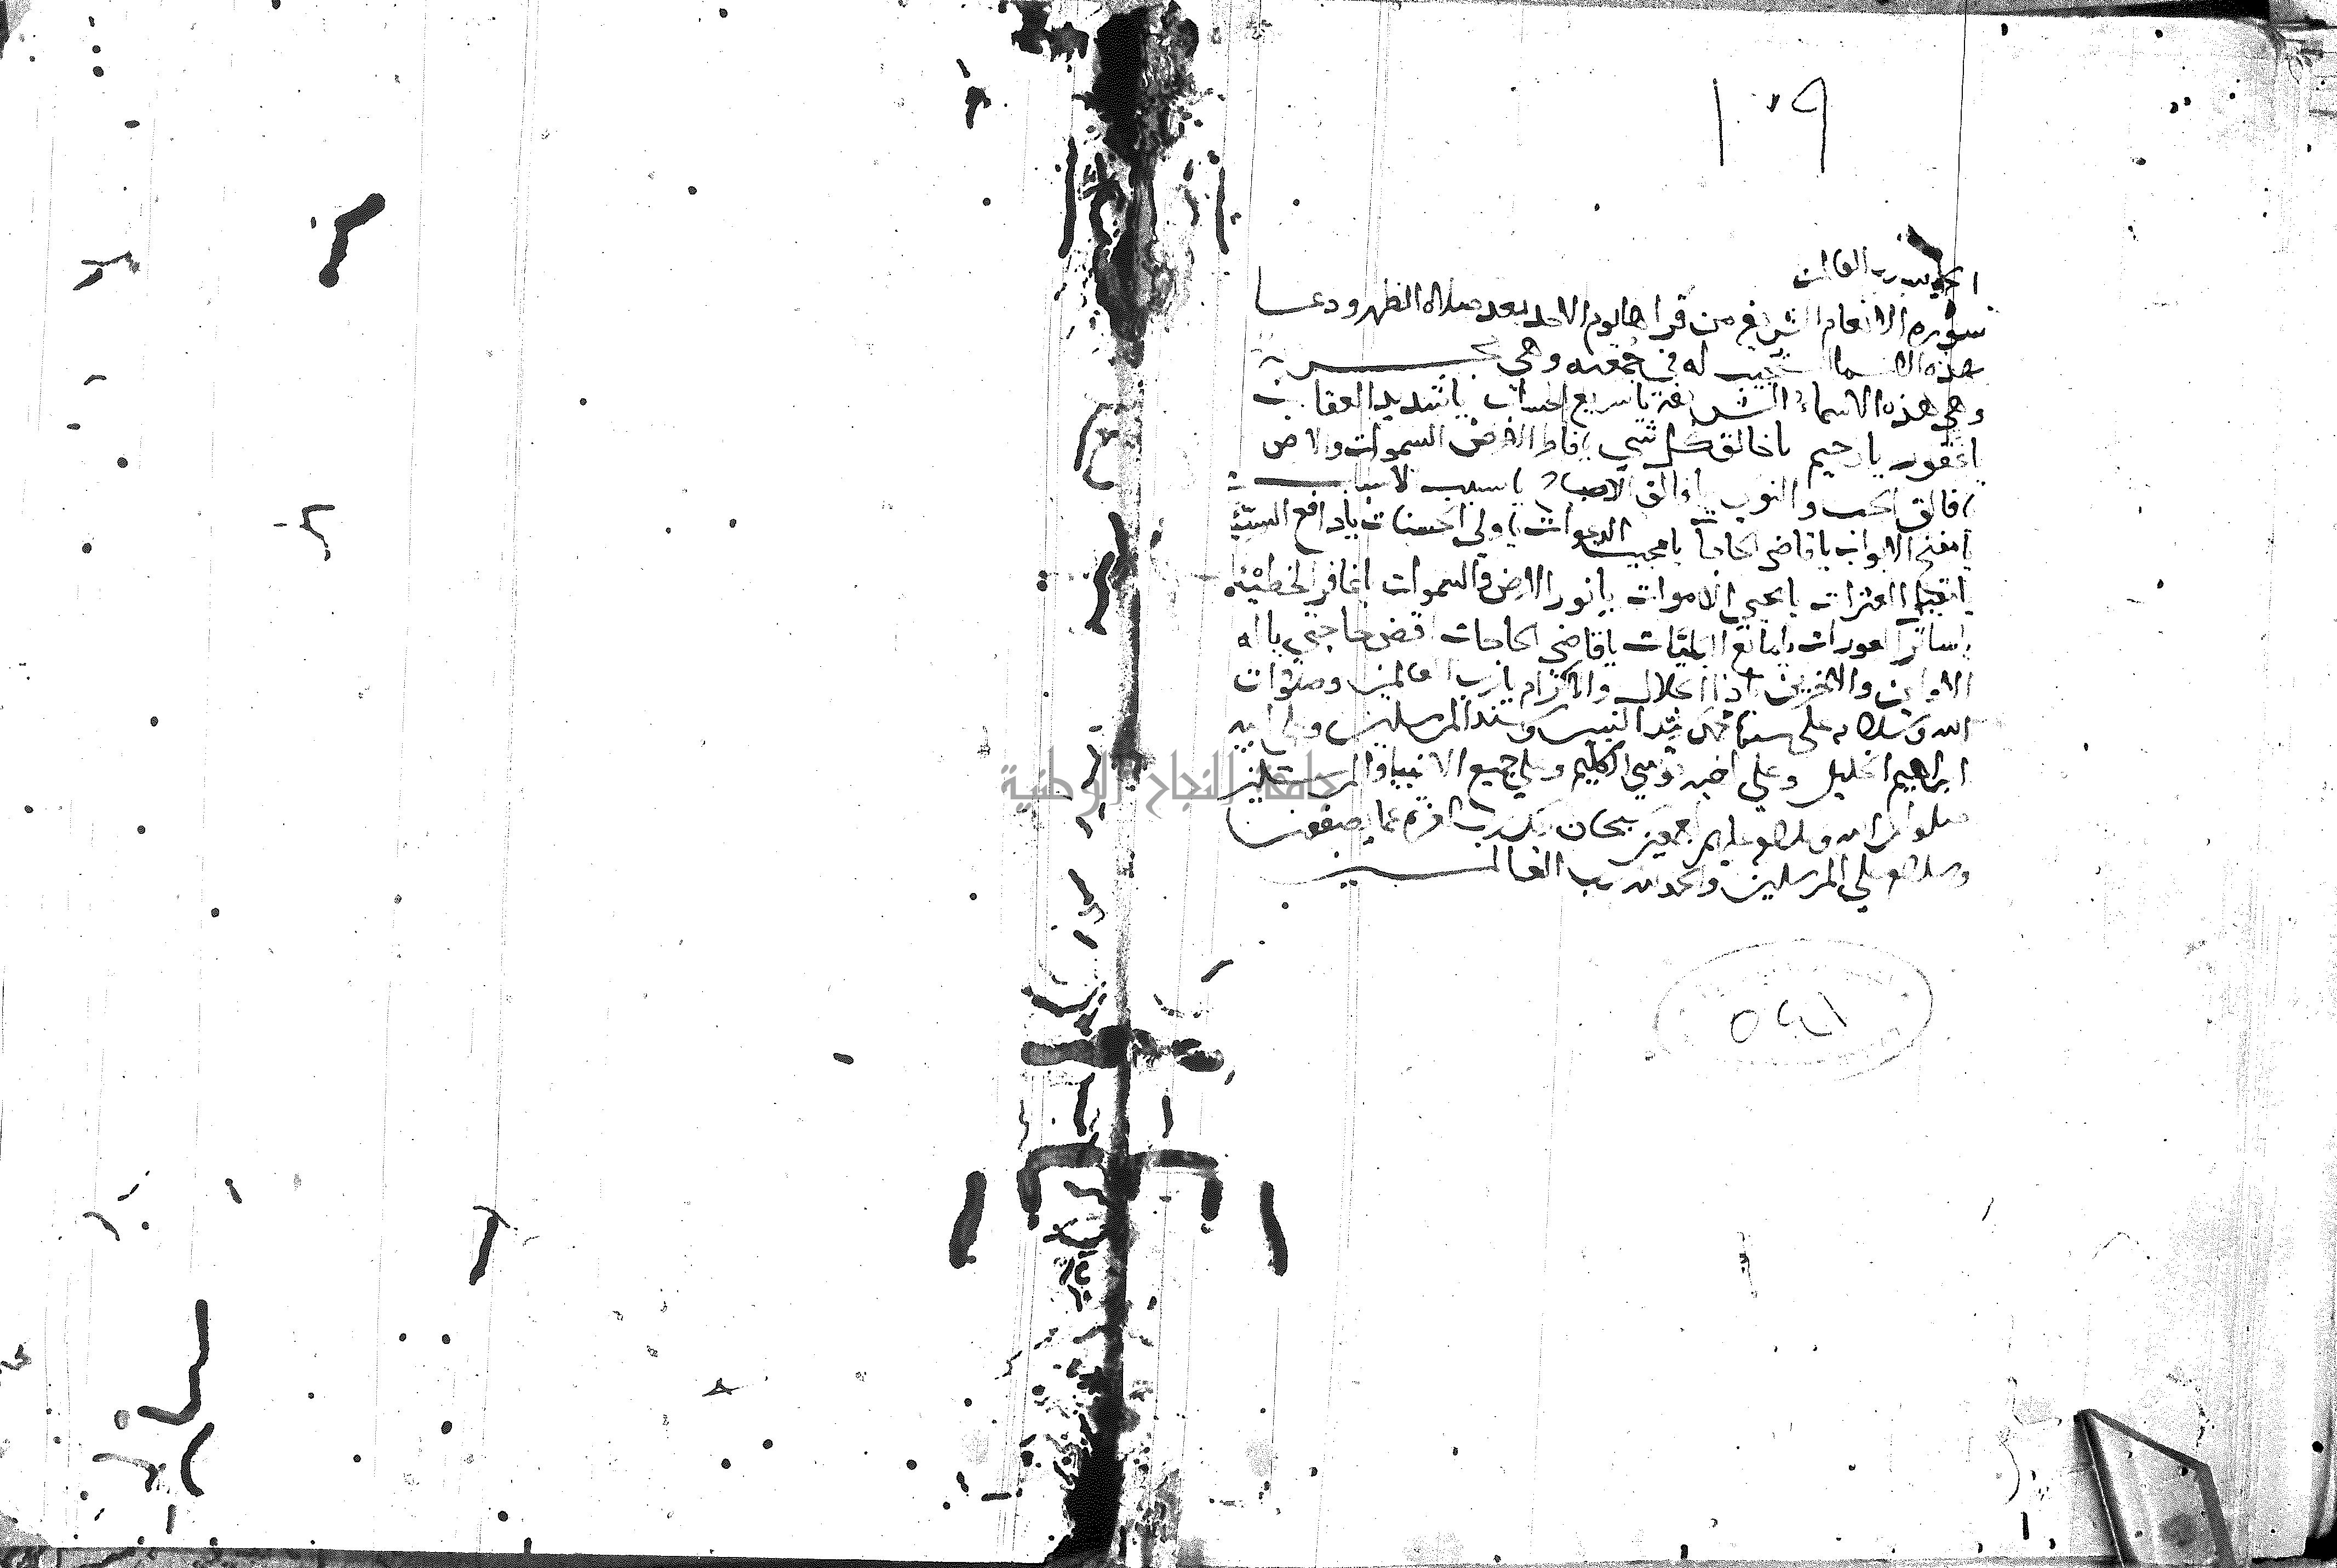 ١٠٩
الحمد لله رب العالمين
سورة الانعام الشريفه من قراها يوم الاحد بعد صلاة الظهر ودعا
بهذه الاسما استجيب له في جمعته وهي مجربة
وهي هذه الاسماء الشريفة يا سريع الحساب يا شديد العقاب
يا غفور يا رحيم يا خالق كل شي يا فاطر السموات والارض
يا فالق الحب والنوى يا فالق الاصباح يا مسبب الاسباب
يا مفتح الابواب يا قاضي الحاجات يا مجيب الدعوات يا ولي الحسنات يا دافع السيئات
يا مقيل العثرات يا محيي الاموات يا نور الارض والسموات يا غافر الخطيئه
يا ساتر العورات يا مانع البليات يا قاضي الحاجات اقض حاجتي يا اله
الاولين والاخرين يا ذا الجلال والاكرام يا رب العالمين وصلوات
الله وسلامه على سيدنا محمد سيد النبيين وسند المرسلين وعلى ابيه
ابراهيم الخليل وعلى اخيه موسى الكليم وعلى جميع الانبيا والمرسلين
صلوات الله وسلامه عليهم اجمعين سبحان ربك رب العزة عما يصفون
وسلام على المرسلين والحمد لله رب العالمين
جامعة النجاح الوطنية